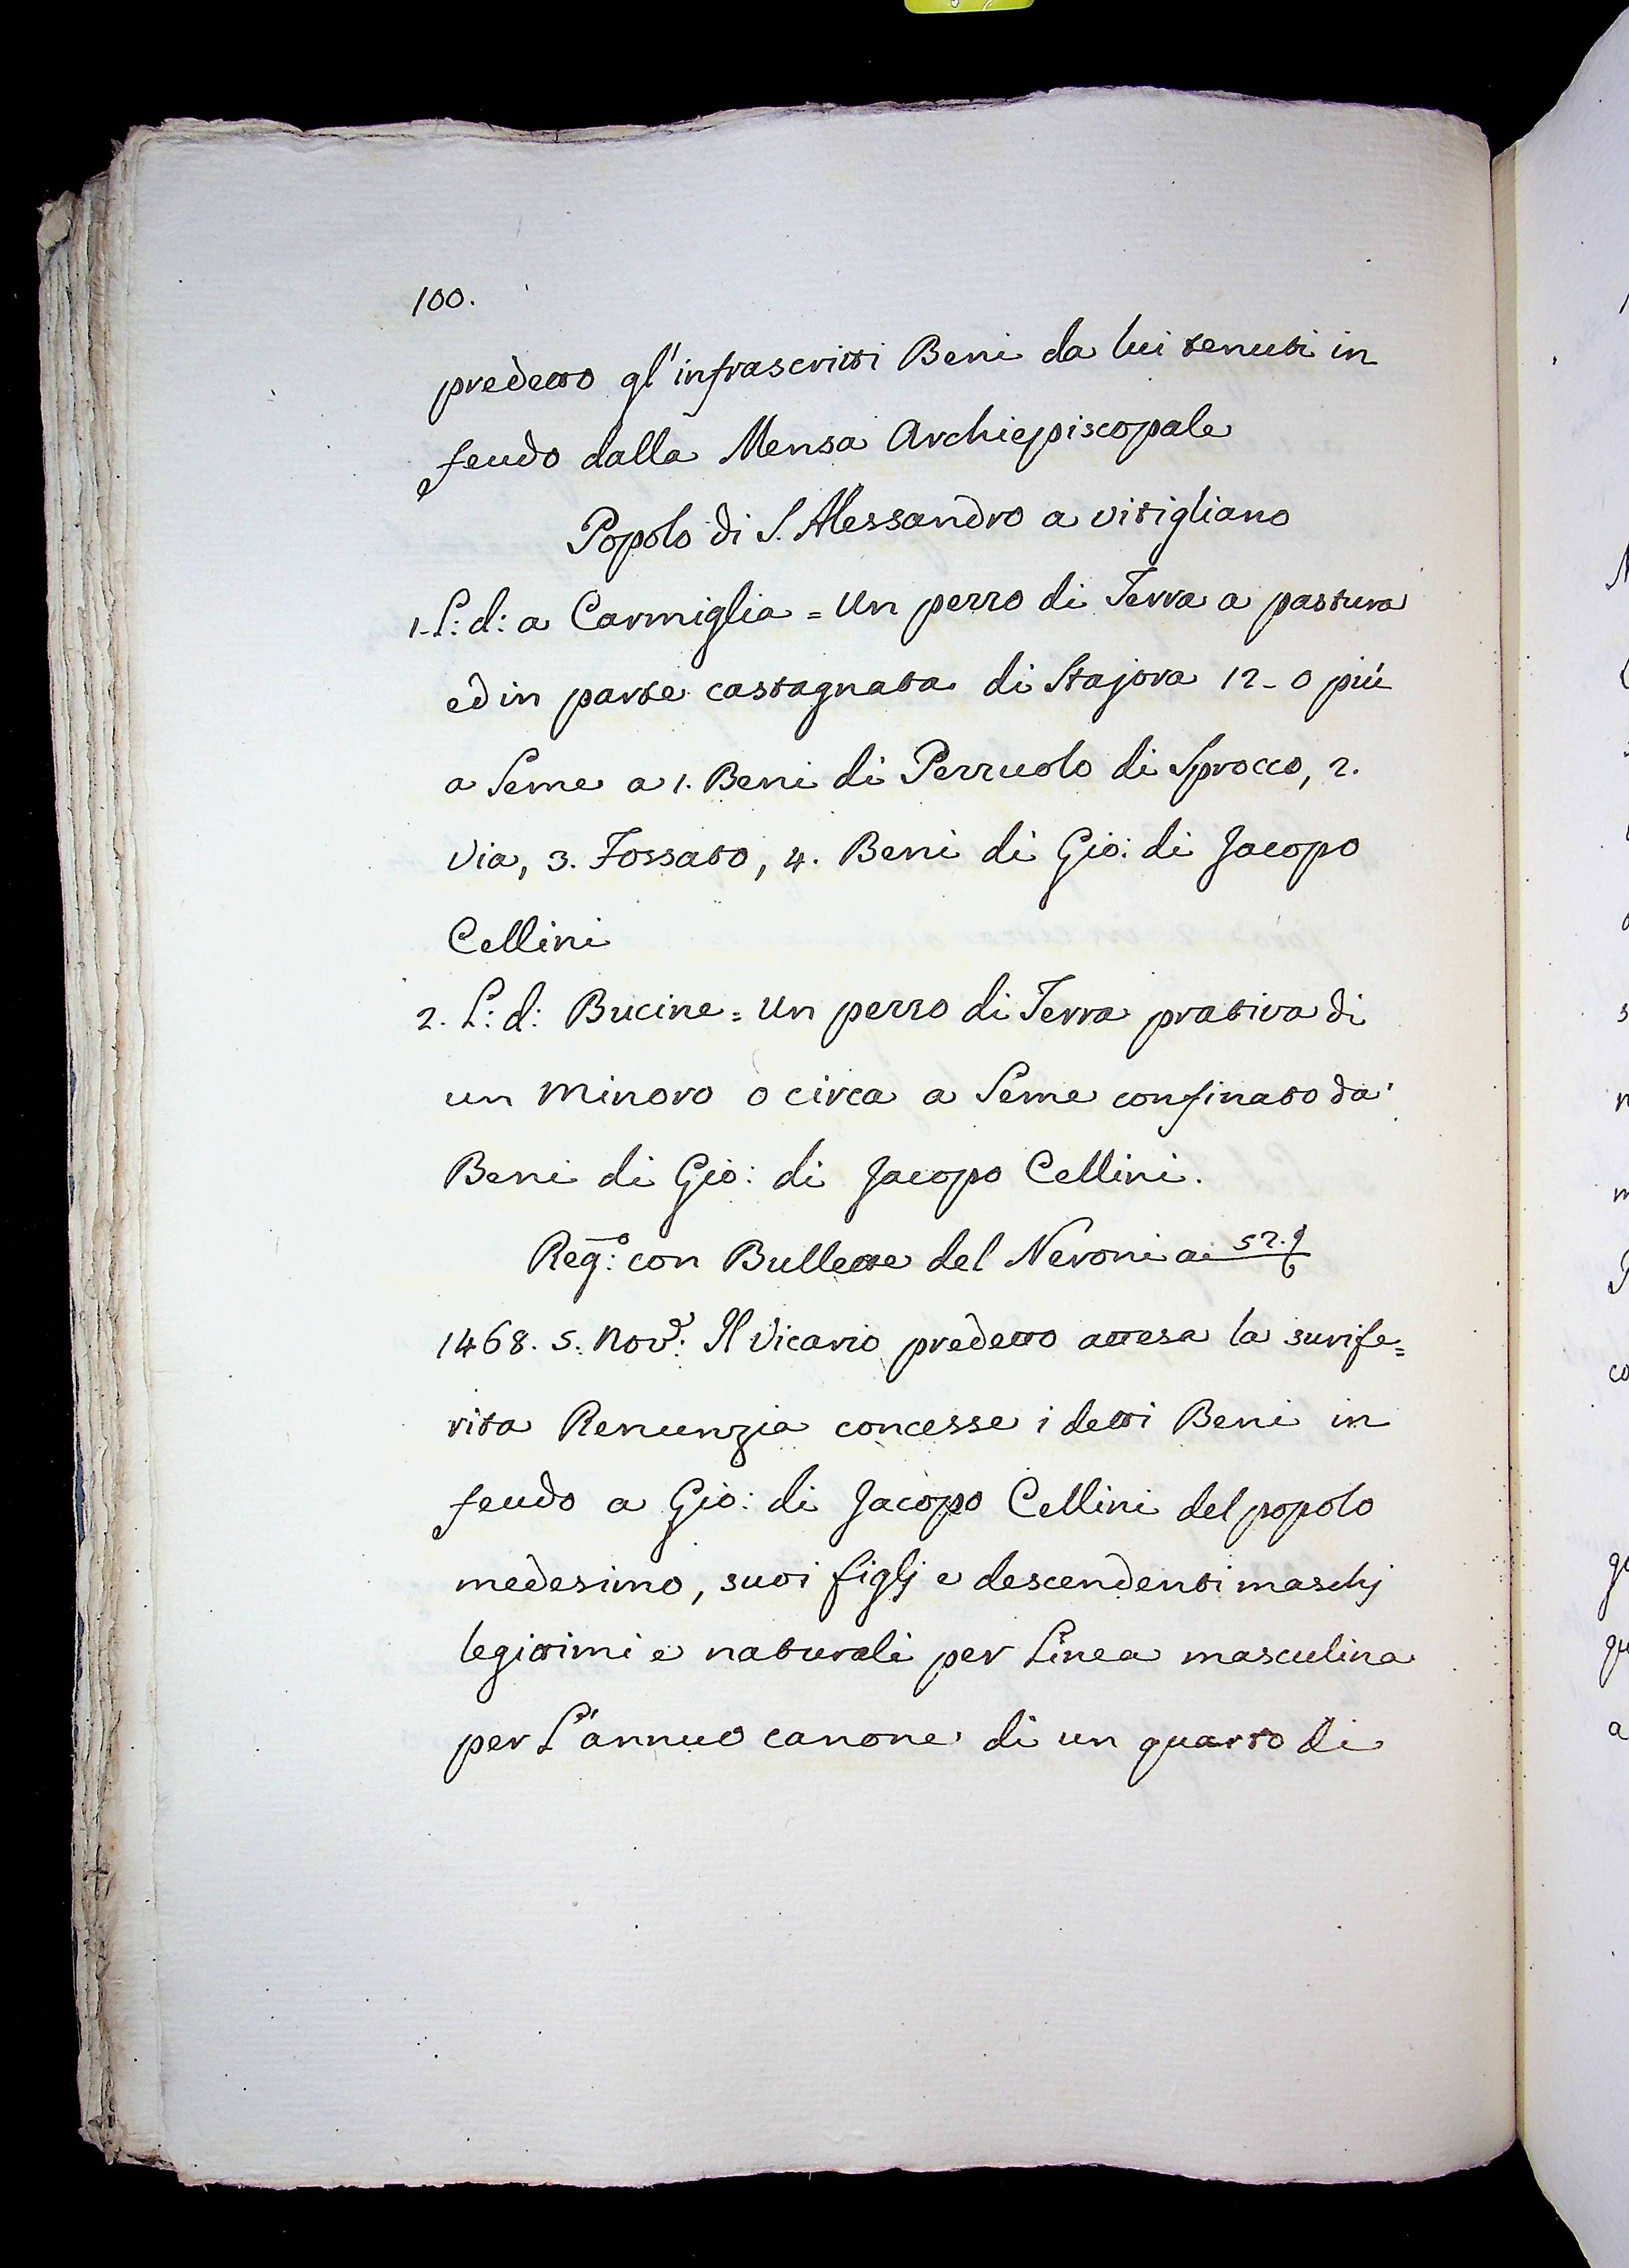 100.
predetto gl'infrascritti Beni da lui tenuti in
feudo dalla Mensa Archiepiscopale
Popolo di S. Alessandro a vitigliano
1. L: d: a Carmiglia = Un pezzo di Terra a pastura
ed in parte castagnata di Stajora 12 - o più
a Seme a 1. Beni di Pezzuolo di Sprocco, 2.
Via, 3. Fossato, 4. Beni di Gio: di Jacopo
Cellini
2. L: d: Bucine = Un pezzo di Terra prativa di
un minoro o circa a Seme confinato da'
Beni di Gio: di Jacopo Cellini.
Reg:º con Bullette del Neroni a 52.
1468. 5. Nov: Il Vicario predetto attesa la surife=
rita Renunzia concesse i detti Beni in
feudo a Gio: di Jacopo Cellini del popolo
medesimo, suoi figlj e descendenti maschj
legittimi e naturali per Linea masculina
per L'annuo canone di un quarto di